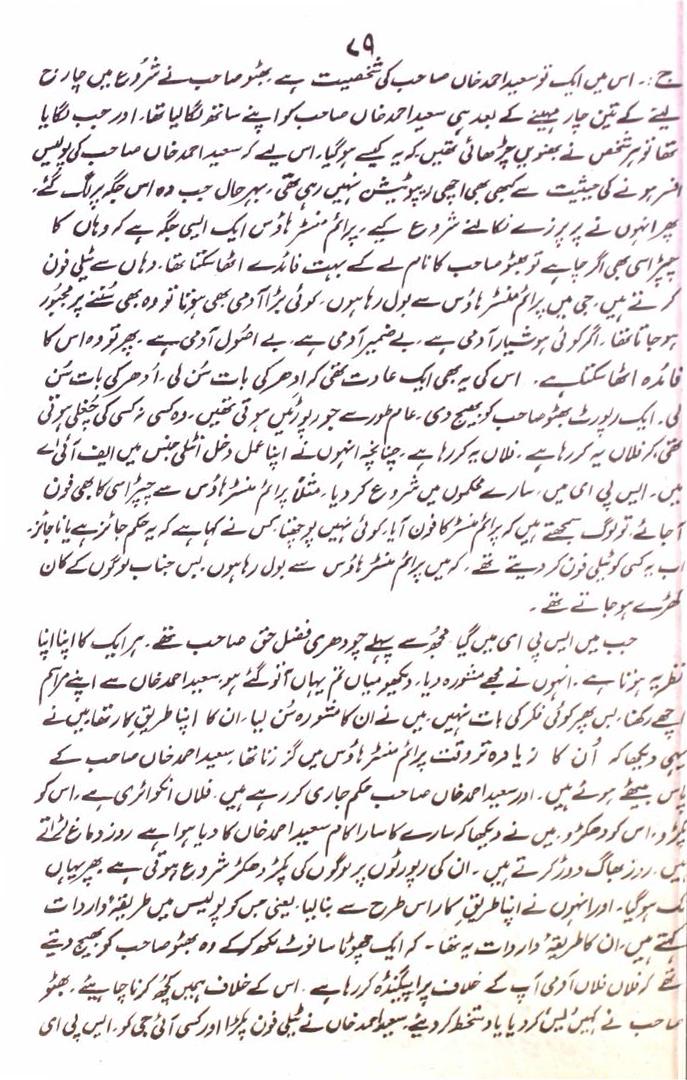 ۷۹
ج:۔ اس میں ایک تو سعید احمد خاں صاحب کی شخصیت ہے بھٹو صاحب نے شروع میں چارج
لینے کے تین چار مہینے کے بعد ہی سعید احمد خاں صاحب کو اپنے ساتھ لگا لیا تھا۔ اور جب لگایا
تھا تو ہر شخص نے بھنویں چڑھائی تھیں کہ یہ کیسے ہو گیا۔ اس لیے کہ سعید احمد خاں صاحب کی پولیس
افسر ہونے کی حیثیت سے کبھی بھی اچھی ریپوٹیشن نہیں رہی تھی۔ بہر حال جب وہ اس جگہ پر لگ گئے،
پھر انہوں نے پر پرزے نکالنے شروع کیے۔ پرائم منسٹر ہاؤس ایک ایسی جگہ ہے کہ وہاں کا
چپڑاسی بھی اگر چاہے تو بھٹو صاحب کا نام لے کے بہت فائدے اٹھا سکتا تھا۔ وہاں سے ٹیلی فون
کرتے ہیں۔ جی میں پرائم منسٹر ہاؤس سے بول رہا ہوں۔ کوئی بڑا آدمی بھی ہوتا تو وہ بھی سننے پر مجبور
ہو جاتا تھا۔ اگر کوئی ہوشیار آدمی ہے، بے ضمیر آدمی ہے، بے اصول آدمی ہے۔ پھر تو وہ اس کا
فائدہ اٹھا سکتا ہے۔ اس کی یہ بھی ایک عادت تھی کہ ادھر کی بات سُن لی، اُدھر کی بات سُن
لی۔ ایک رپورٹ بھٹو صاحب کو بھیج دی۔ عام طور سے جو رپورٹیں ہوتی تھیں۔ وہ کسی نہ کسی کی چغلی ہوتی
تھی، کہ فلاں یہ کر رہا ہے۔ فلاں یہ کر رہا ہے۔ چنانچہ انہوں نے اپنا عمل دخل انٹیلی جنس میں ایف آئی اے
میں۔ ایس پی ای میں۔ سارے محکموں میں شروع کر دیا۔ مثلاً پرائم منسٹر ہاؤس سے چپڑاسی کا بھی فون
آ جائے، تو لوگ سمجھتے ہیں کہ پرائم منسٹر کا فون آیا۔ کوئی نہیں پوچھتا، کس نے کہا ہے کہ یہ حکم جائز ہے یا ناجائز۔
اب یہ کسی کو ٹیلی فون کر دیتے تھے۔ کہ میں پرائم منسٹر ہاؤس سے بول رہا ہوں، بس جناب لوگوں کے کان
کھڑے ہو جاتے تھے۔
جب میں ایس پی ای میں گیا۔ مجھ سے پہلے چودھری فضل حق صاحب تھے۔ ہر ایک کا اپنا اپنا
نظریہ ہوتا ہے۔ انہوں نے مجھے مشورہ دیا۔ دیکھو میاں تم یہاں آ تو گئے ہو، سعید احمد خاں سے اپنے مراسم
اچھے رکھنا، بس پھر کوئی فکر کی بات نہیں۔ میں نے ان کا مشورہ سن لیا۔ ان کا اپنا طریق کار تھا، میں نے
یہی دیکھا کہ اُن کا زیادہ تر وقت پرائم منسٹر ہاؤس میں گزرتا تھا۔ سعید احمد خاں صاحب کے
پاس بیٹھے ہوئے ہیں۔ اور سعید احمد خاں صاحب حکم جاری کر رہے ہیں۔ فلاں انکوائری ہے، اس کو
پکڑو، اس کو دھکڑو، میں نے دیکھا کہ سارے کا سارا کام سعید احمد خاں کا دیا ہوا ہے روز دماغ لڑاتے
ہیں۔ روز بھاگ دوڑ کرتے ہیں۔ ان کی رپورٹوں پر لوگوں کی پکڑ دھکڑ شروع ہوتی ہے۔ پھر یہاں
تک ہو گیا۔ اور انہوں نے اپنا طریق کار اس طرح سے بنا لیا، یعنی جس کو پولیس میں طریقۂ واردات
کہتے ہیں۔ ان کا طریقۂ واردات یہ تھا۔ کہ ایک چھوٹا سا نوٹ لکھ کر کے وہ بھٹو صاحب کو بھیج دیتے
تھے کہ فلاں فلاں آدمی آپ کے خلاف پراپیگنڈہ کر رہا ہے۔ اس کے خلاف ہمیں کچھ کرنا چاہیئے۔ بھٹو
صاحب نے کہیں یس کر دیا یا دستخط کر دیئے۔ سعید احمد خاں نے ٹیلی فون پکڑا اور کسی آئی جی کو۔ ایس پی ای